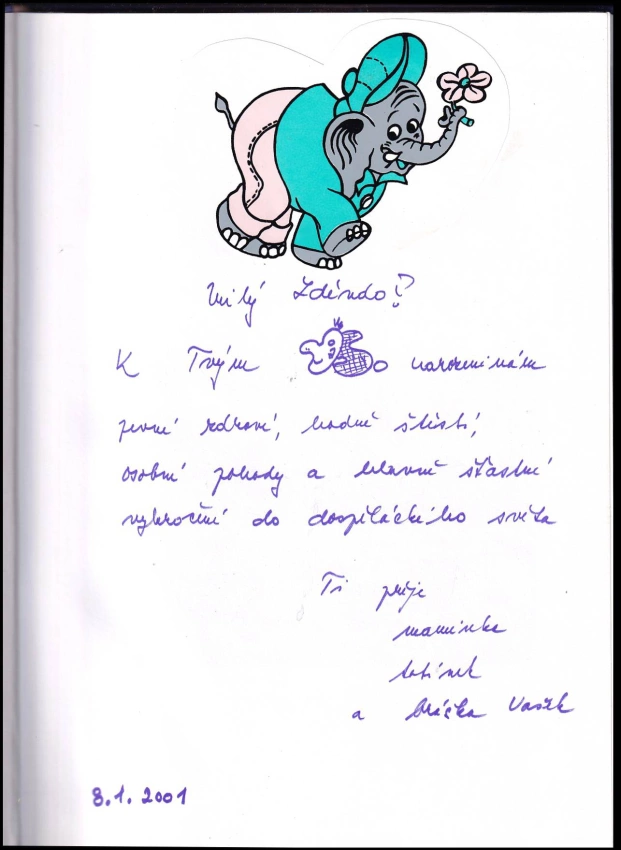 Milý Zdéndo!
K Tvým narozeninám
pevné zdraví, hodně štěstí,
osobní pohody a hlavně šťastné
vykročení do dospěláckého světa
Ti přeje
maminka
tatínek
a bráška Vašek
8.1.2001